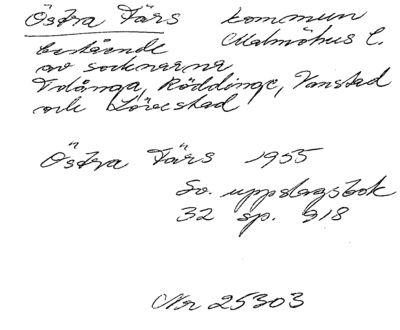 Östra Färs kommun
bestående Malmöhus l.
av socknarna
Tolånga, Röddinge, Vanstad
och Lövestad
Östra Färs 1955
Sv. uppslagsbok
32 sp. 918
Nr 25303